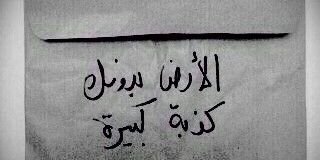 الأرض بدونك
كذبة كبيرة